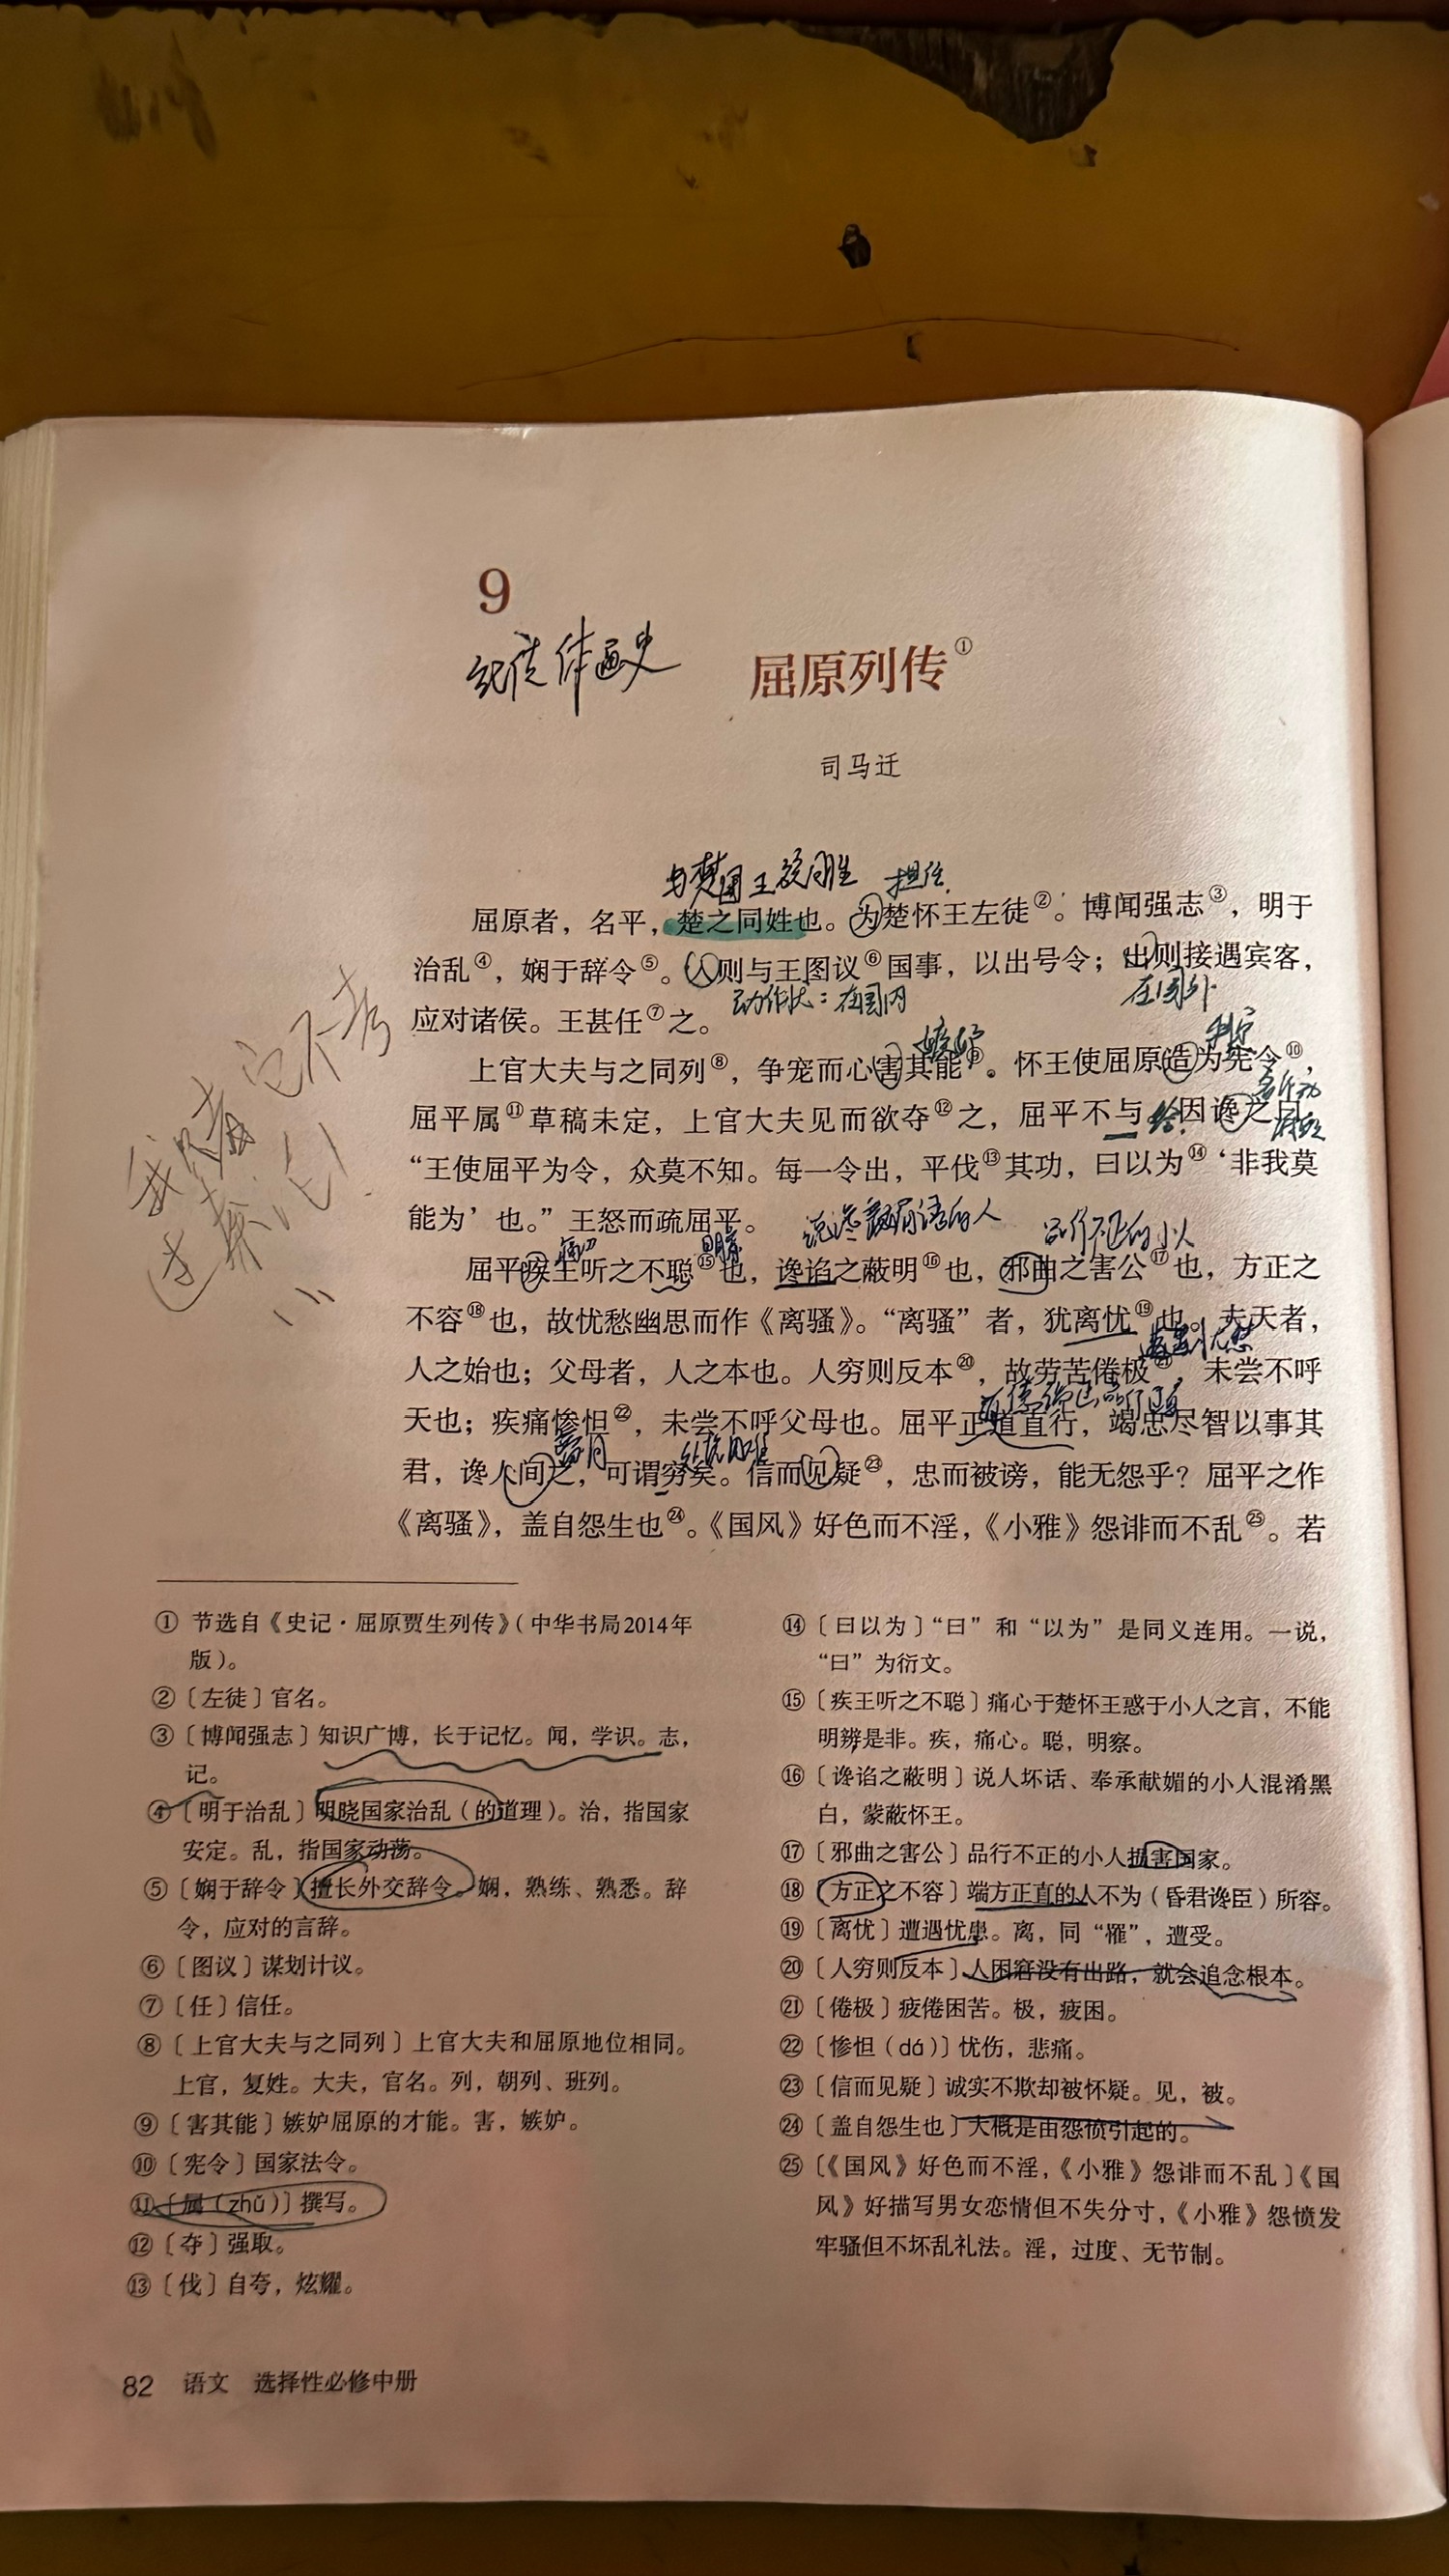 9
纪传体通史
屈原列传①
司马迁
与楚国王族同姓 担任
屈原者，名平，楚之同姓也。为楚怀王左徒②。博闻强志③，明于
治乱④，娴于辞令⑤。入则与王图议⑥国事，以出号令；出则接遇宾客，
动作状：在国内 在国外
应对诸侯。王甚任⑦之。
嫉妒 制定
上官大夫与之同列⑧，争宠而心害其能⑨。怀王使屈原造为宪令⑩，
屈平属⑪草稿未定，上官大夫见而欲夺⑫之，屈平不与，因谗之曰：
给
“王使屈平为令，众莫不知。每一令出，平伐⑬其功，曰以为⑭‘非我莫
能为’也。”王怒而疏屈平。
的人 品行不正的小人
屈平疾王听之不聪⑮也，谗谄之蔽明⑯也，邪曲之害公⑰也，方正之
不容⑱也，故忧愁幽思而作《离骚》。“离骚”者，犹离忧⑲也。夫天者，
人之始也；父母者，人之本也。人穷则反本⑳，故劳苦倦极㉑，未尝不呼
天也；疾痛惨怛㉒，未尝不呼父母也。屈平正道直行，竭忠尽智以事其
君，谗人间之，可谓穷矣。信而见疑㉓，忠而被谤，能无怨乎？屈平之作
《离骚》，盖自怨生也㉔。《国风》好色而不淫，《小雅》怨诽而不乱㉕。若
① 节选自《史记·屈原贾生列传》（中华书局2014年
版）。
②〔左徒〕官名。
③〔博闻强志〕知识广博，长于记忆。闻，学识。志，
记。
④〔明于治乱〕明晓国家治乱（的道理）。治，指国家
安定。乱，指国家动荡。
⑤〔娴于辞令〕擅长外交辞令。娴，熟练、熟悉。辞
令，应对的言辞。
⑥〔图议〕谋划计议。
⑦〔任〕信任。
⑧〔上官大夫与之同列〕上官大夫和屈原地位相同。
上官，复姓。大夫，官名。列，朝列、班列。
⑨〔害其能〕嫉妒屈原的才能。害，嫉妒。
⑩〔宪令〕国家法令。
⑪〔属（zhǔ）〕撰写。
⑫〔夺〕强取。
⑬〔伐〕自夸，炫耀。
⑭〔曰以为〕“曰”和“以为”是同义连用。一说，
“曰”为衍文。
⑮〔疾王听之不聪〕痛心于楚怀王惑于小人之言，不能
明辨是非。疾，痛心。聪，明察。
⑯〔谗谄之蔽明〕说人坏话、奉承献媚的小人混淆黑
白，蒙蔽怀王。
⑰〔邪曲之害公〕品行不正的小人损害国家。
⑱〔方正之不容〕端方正直的人不为（昏君谗臣）所容。
⑲〔离忧〕遭遇忧患。离，同“罹”，遭受。
⑳〔人穷则反本〕人困窘没有出路，就会追念根本。
㉑〔倦极〕疲倦困苦。极，疲困。
㉒〔惨怛（dá）〕忧伤，悲痛。
㉓〔信而见疑〕诚实不欺却被怀疑。见，被。
㉔〔盖自怨生也〕大概是由怨愤引起的。
㉕〔《国风》好色而不淫，《小雅》怨诽而不乱〕《国
风》好描写男女恋情但不失分寸，《小雅》怨愤发
牢骚但不坏乱礼法。淫，过度、无节制。
82 语文 选择性必修中册